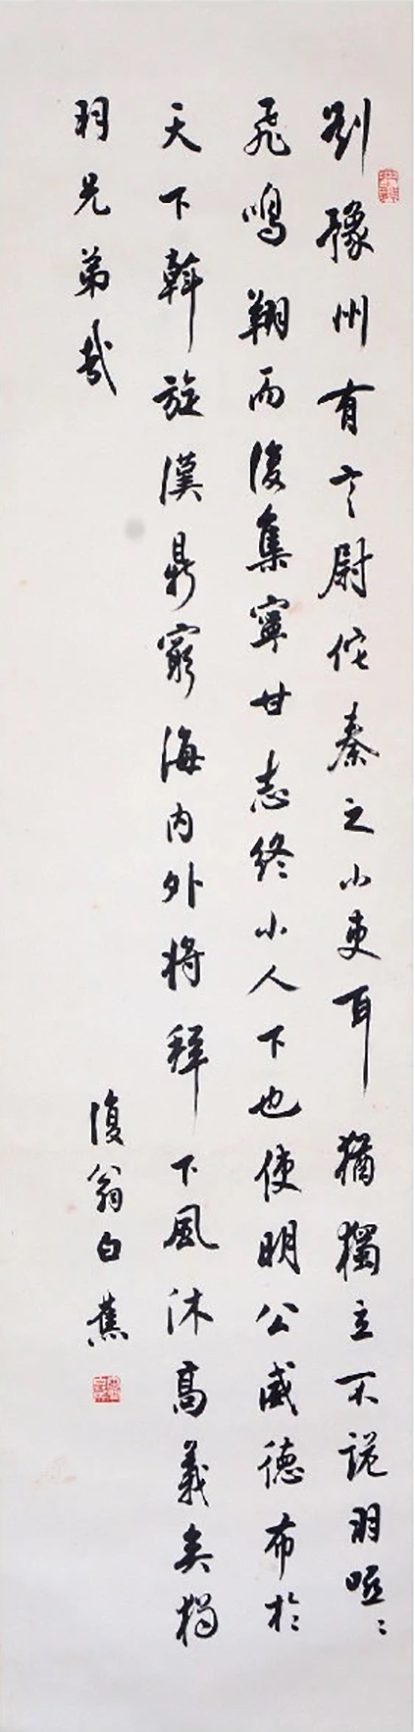 劉豫州有言尉佗秦之小吏耳猶獨立不詭羽啞〻
飛鳴翔而後集寧甘志終小人下也使明公威德布於
天下斡旋漢鼎窮海内外将拜下風沐高義矣獨
羽兄弟哉
復翁白蕉